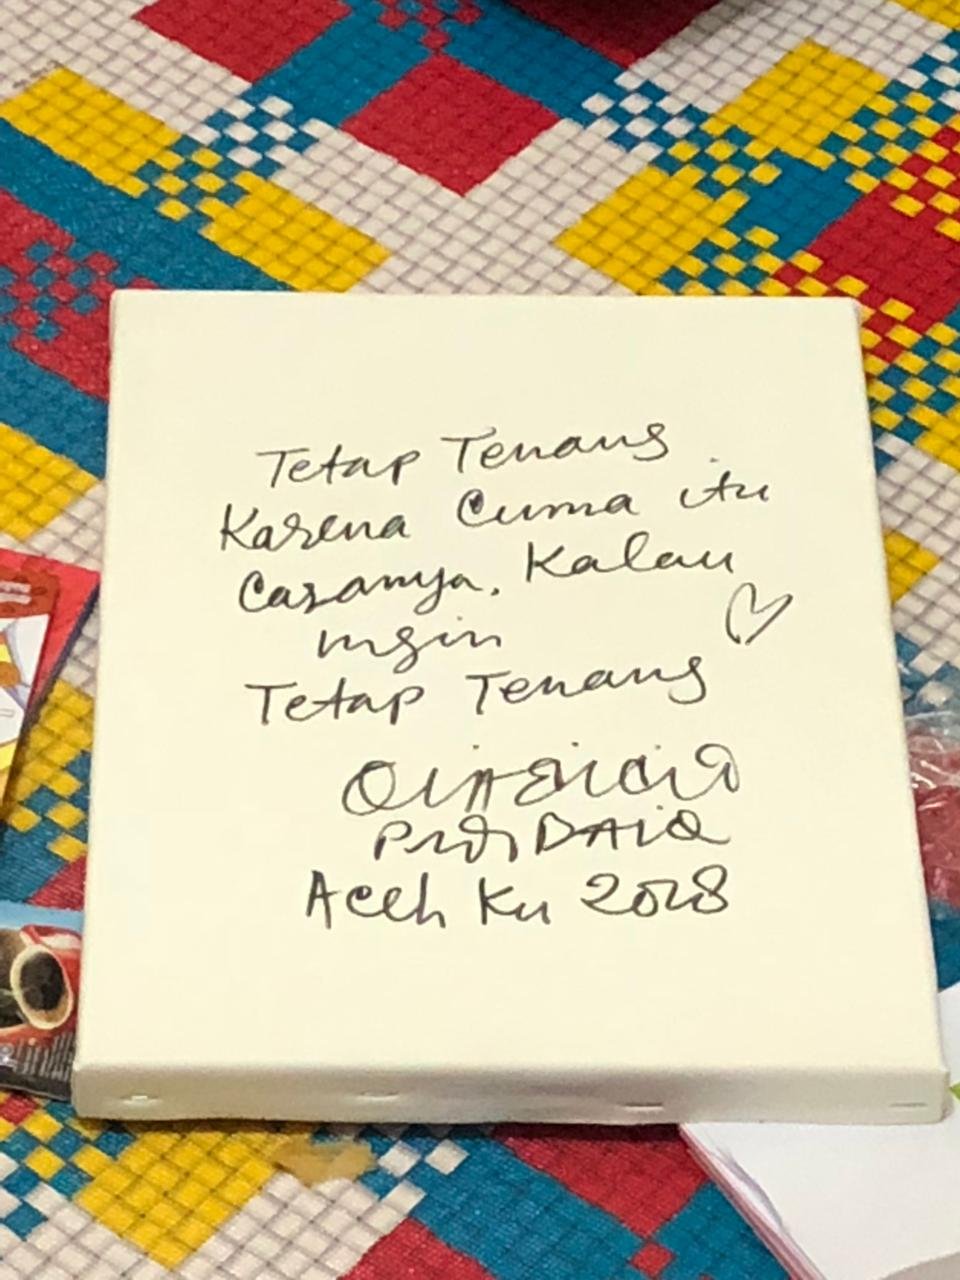 Tetap Tenang
Karena Cuma itu
Caranya. Kalau
ingin
Tetap Tenang
Aceh Ku 2018